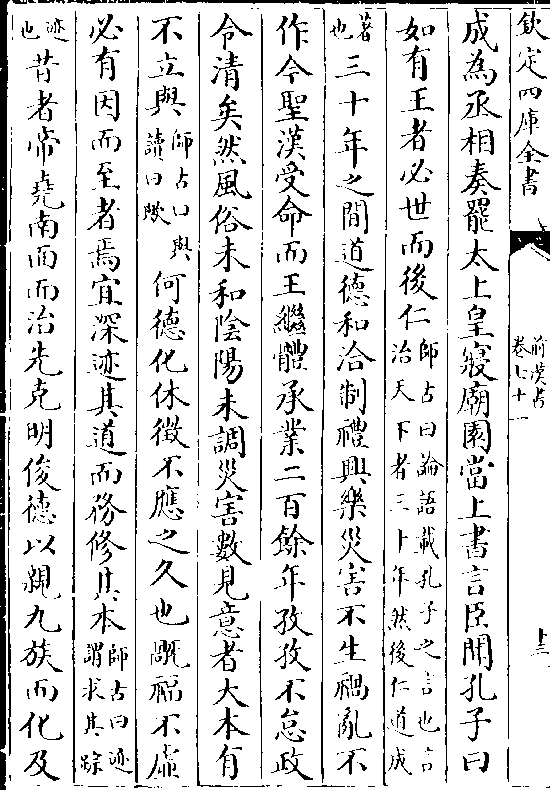 欽定四庫全書
前漢書
卷七十一
十三
成為丞相奏罷太上皇寢廟園當上書言臣聞孔子曰
如有王者必世而後仁師古曰論語載孔子之言也言治天下者三十年然後仁道成
著也三十年之間道德和洽制禮興樂災害不生禍亂不
作今聖漢受命而王繼體承業二百餘年孜孜不怠政
令清矣然風俗未和陰陽未調災害數見意者大本有
不立與師古曰與讀曰歟何德化休徵不應之久也禍福不虛
必有因而至者焉宜深迹其道而務修其本師古曰迹謂求其蹤
迹也昔者帝堯南面而治先克明俊德以親九族而化及